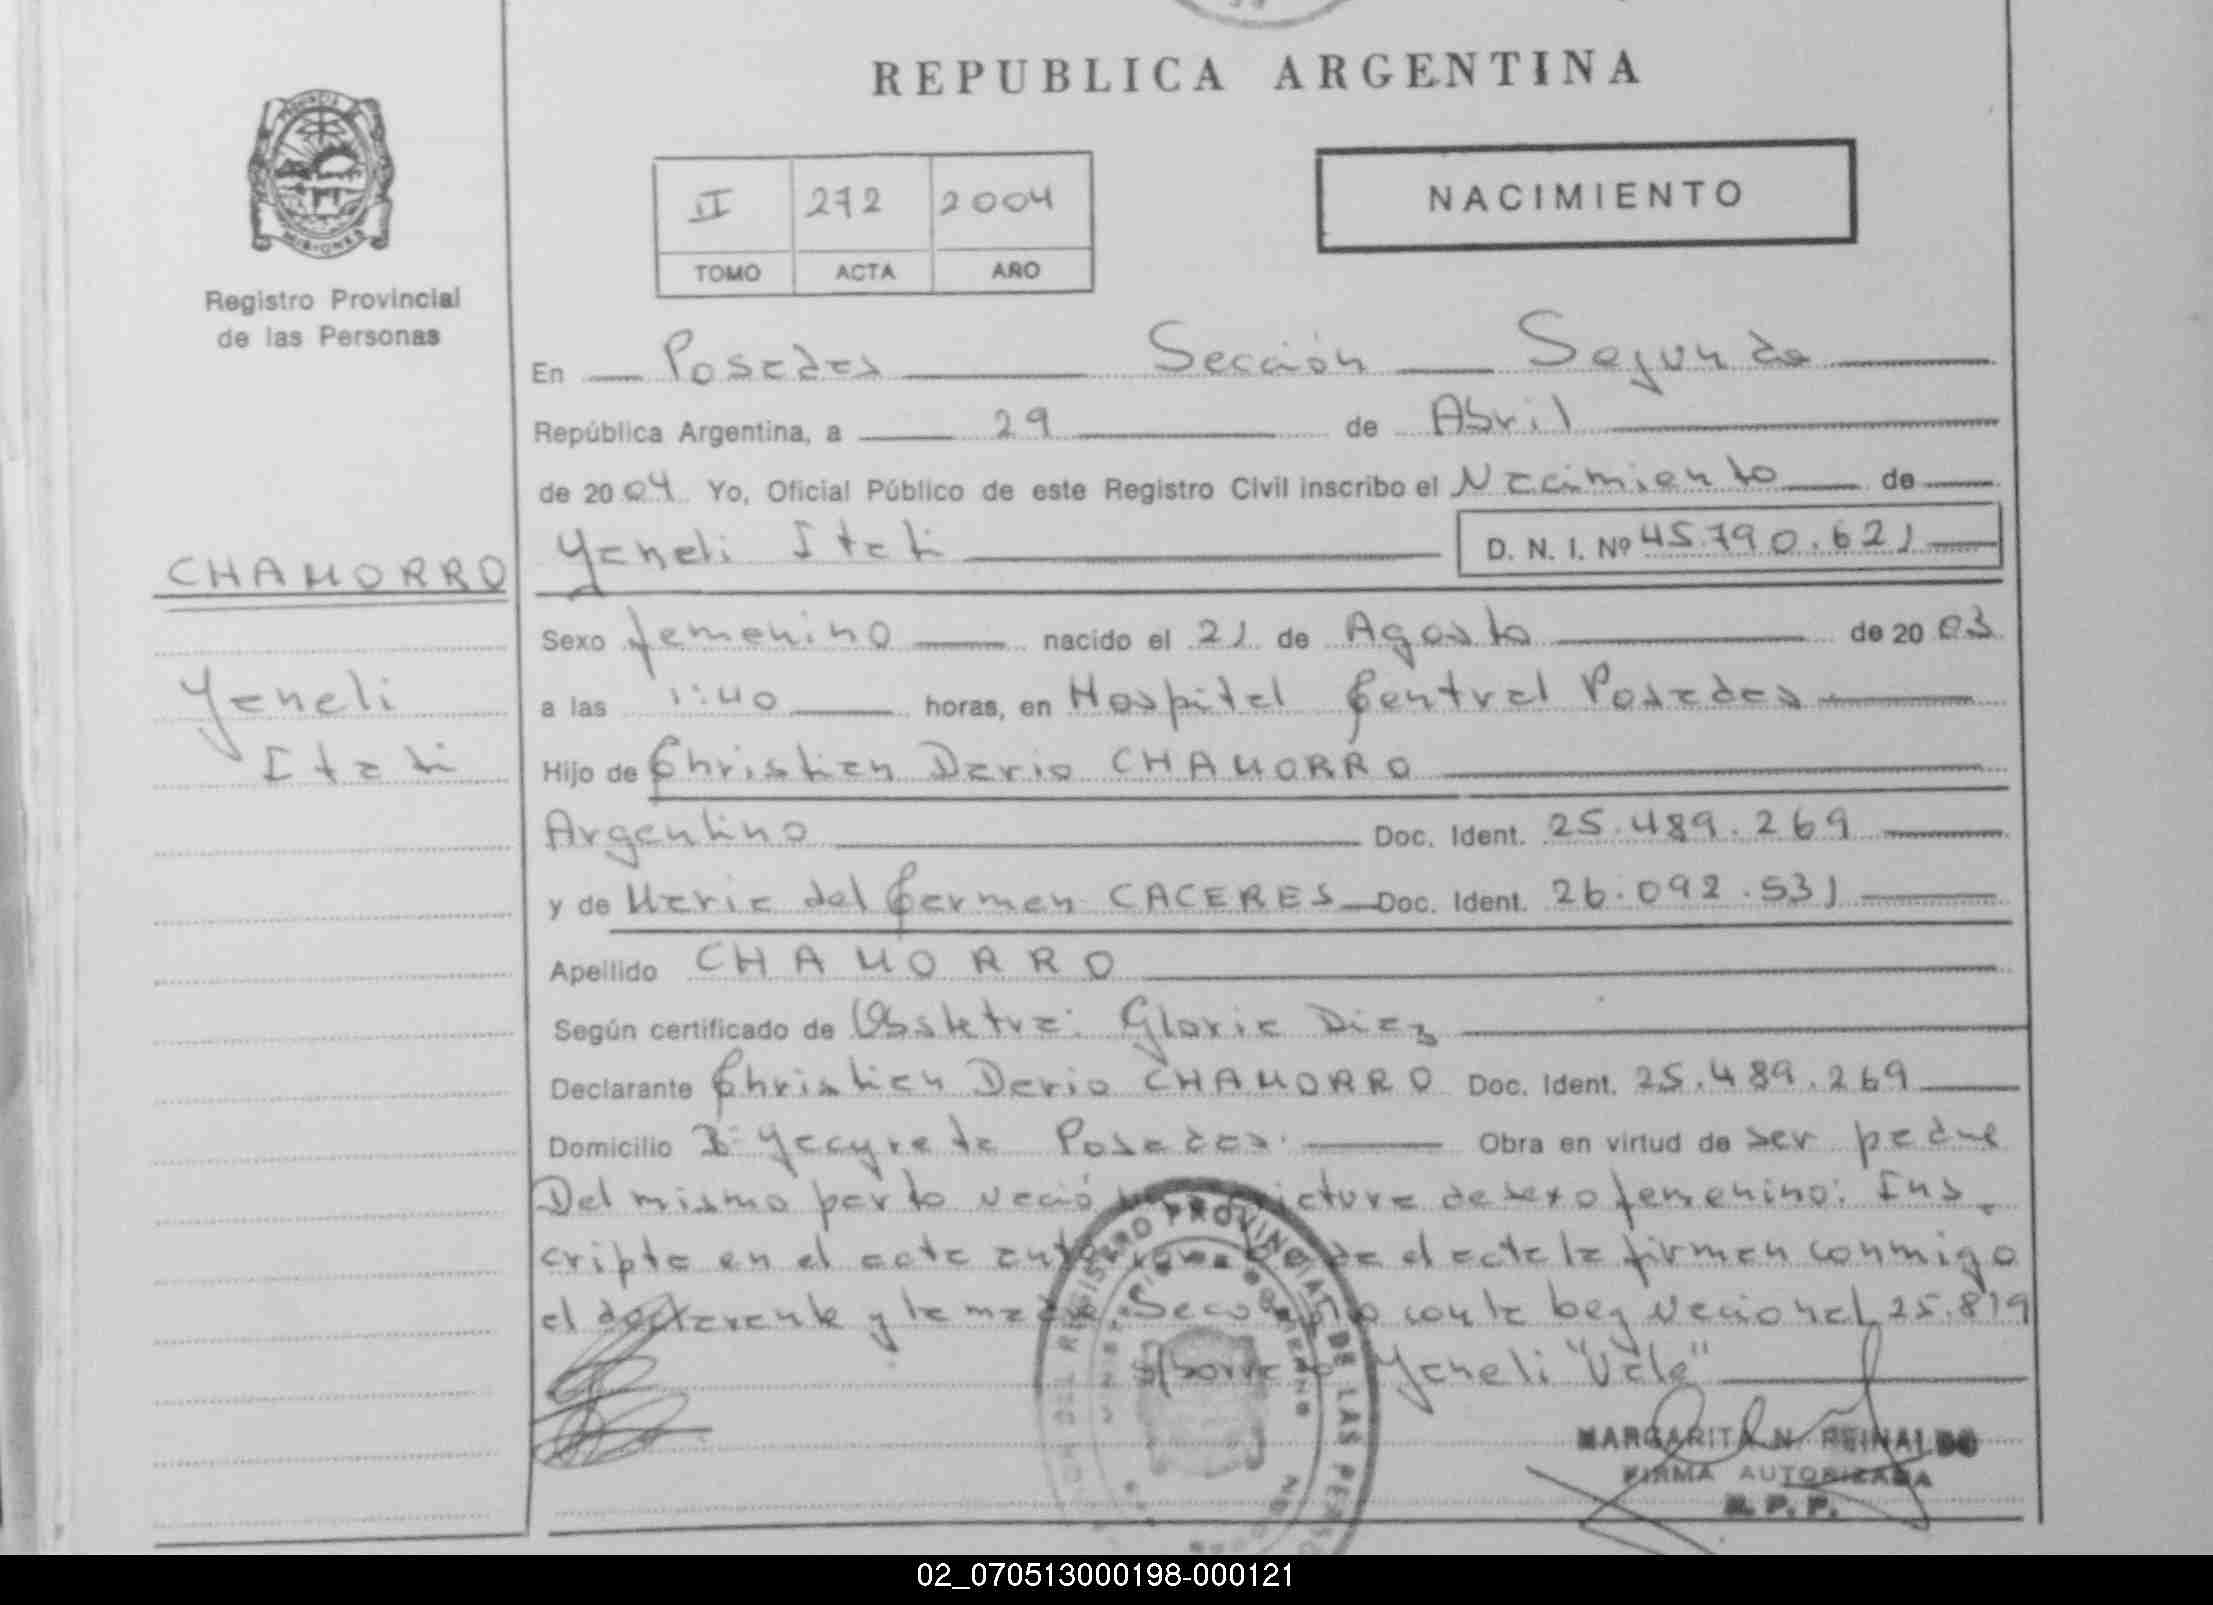 REPUBLICA ARGENTINA
PROVINCIA
MISIONES
Registro Provincial
de las Personas
II 272 2004
TOMO ACTA AÑO
NACIMIENTO
En Posadas Sección Segunda
República Argentina, a 29 de Abril
de 2004 Yo, Oficial Público de este Registro Civil inscribo el Nacimiento de
CHAMORRO
Yaneli Itati D. N. I. Nº 45.790.621
Sexo femenino nacido el 21 de Agosto de 2003
Yaneli
a las 1:40 horas, en Hospital Central Posadas
Itati
Hijo de Christian Dario CHAMORRO
Argentino Doc. Ident. 25.489.269
y de Maria del Carmen CACERES Doc. Ident. 26.092.531
Apellido CHAMORRO
Según certificado de Obstetra: Gloria Diaz
Declarante Christian Dario CHAMORRO Doc. Ident. 25.489.269
Domicilio Yacyreta Posadas. Obra en virtud de ser padre
Del mismo parto nació criatura de sexo femenino: Ins
cripta en el acta el acta la firman conmigo
el declarante y la madre con la ley Nacional 25.819
s/borrado Yaneli "Vale"
REGISTRO PROVINCIAL DE LAS
MARGARITA N. REINALDO
FIRMA AUTORIZADA
R. P. P.
02_070513000198-000121